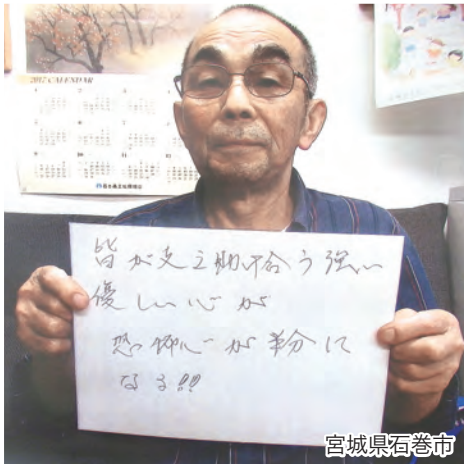 2017 CALENDAR
皆が支え助け合う強い
優しい心が
恐怖心が半分に
なる!!
宮城県石巻市